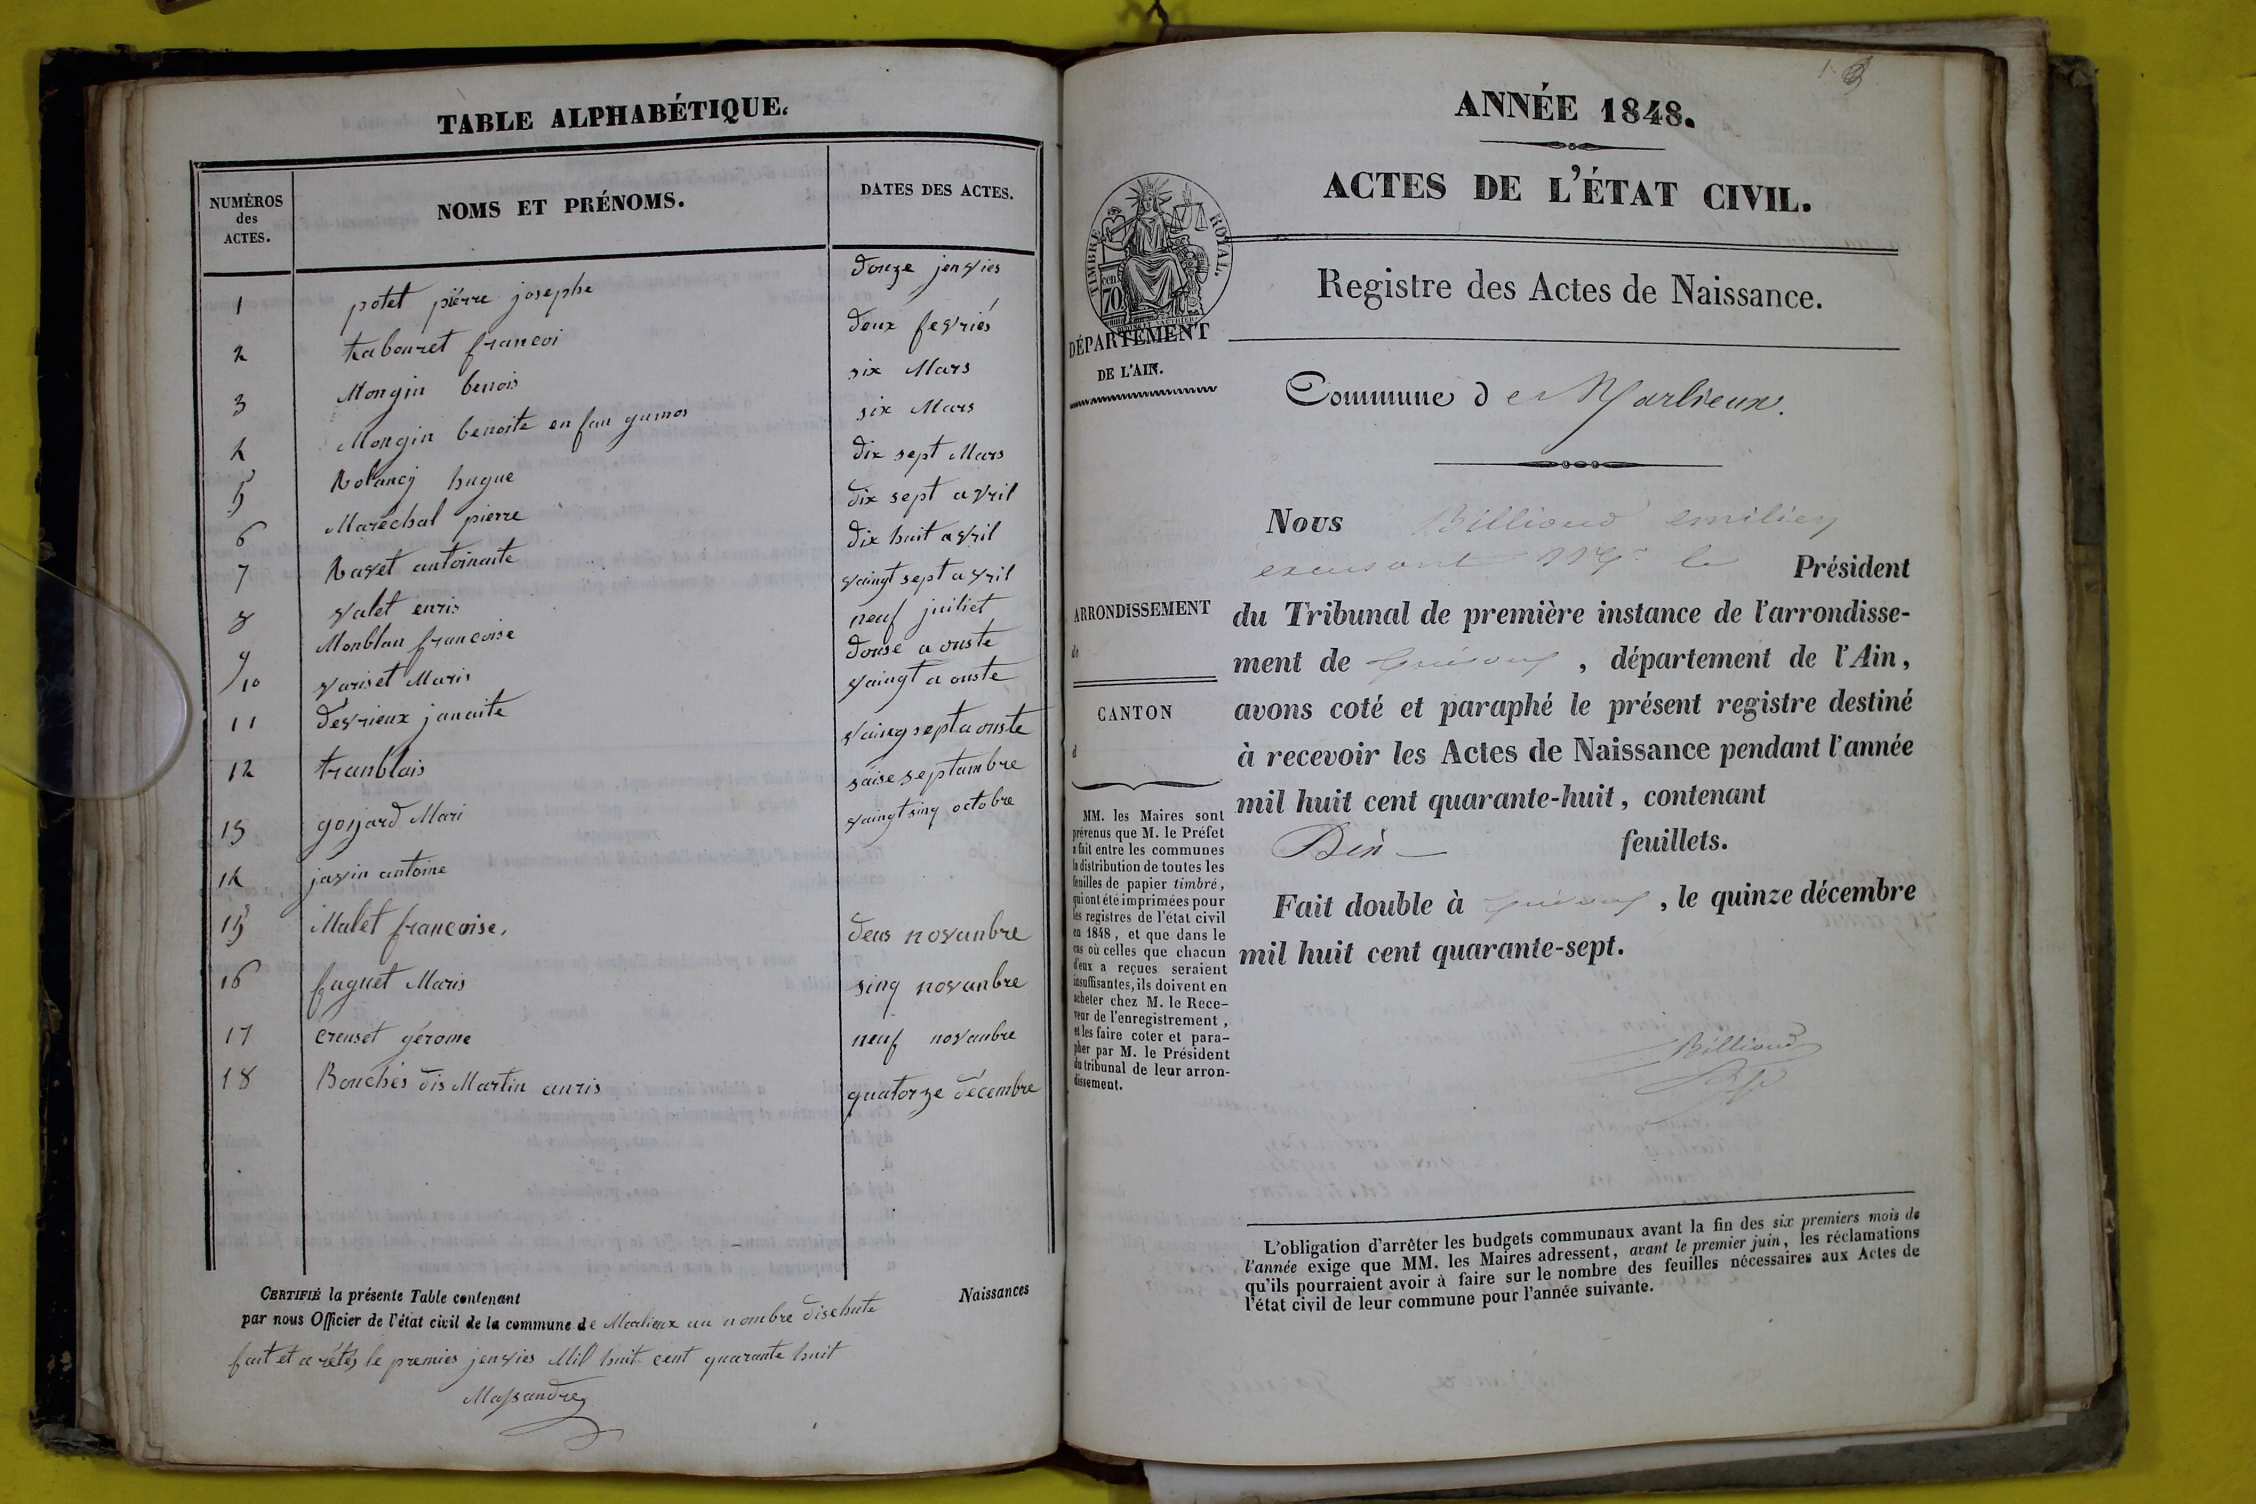 TABLE ALPHABÉTIQUE.
NUMÉROS des ACTES. NOMS ET PRÉNOMS. DATES DES ACTES.
1 potet pierre josephe douze jenvies
2 tabouret francoi deux fevriés
3 Mongin benois six Mars
4 Mongin benoite en fan gumos six Mars
5 hugue dix sept Mars
6 Maréchal pierre dix sept avril
7 Ravet antoinaite dix huit avril
8 valet enris vaingt sept avril
9 Monblan francoise neuf juiliet
10 variset Maris douse aouste
11 dévrieux janaite vaingt aouste
12 tranblais vaing sept aouste
13 goyard Mari saise septambre
14 javin antoine vaingt sinq octobre
15 Malet francoise, deus novanbre
16 faguet Maris sinq novanbre
17 creuset gérome neuf novanbre
18 Bouchés dis Martin anris quatorze décembre
CERTIFIÉ la présente Table contenant Naissances
par nous Officier de l'état civil de la commune de Marlieux au nombre dischute
fait et arétés le premies jenvies Mil huit cent quarante huit
Massandre
1
ANNÉE 1848.
ACTES DE L'ÉTAT CIVIL.
TIMBRE ROYAL.
cen 70
Registre des Actes de Naissance.
DÉPARTEMENT
DE L'AIN.
Commune de Marlieux.
Nous Billioud emilien
le Président
du Tribunal de première instance de l'arrondisse-
ment de , département de l'Ain,
avons coté et paraphé le présent registre destiné
à recevoir les Actes de Naissance pendant l'année
mil huit cent quarante-huit, contenant
Dix feuillets.
Fait double à , le quinze décembre
mil huit cent quarante-sept.
Billioud
ARRONDISSEMENT
de
CANTON
d
MM. les Maires sont
prévenus que M. le Préfet
a fait entre les communes
la distribution de toutes les
feuilles de papier timbré,
qui ont été imprimées pour
les registres de l'état civil
en 1848, et que dans le
cas où celles que chacun
d'eux a reçues seraient
insuffisantes, ils doivent en
acheter chez M. le Rece-
veur de l'enregistrement,
et les faire coter et para-
pher par M. le Président
du tribunal de leur arron-
dissement.
L'obligation d'arrêter les budgets communaux avant la fin des six premiers mois de
l'année exige que MM. les Maires adressent, avant le premier juin, les réclamations
qu'ils pourraient avoir à faire sur le nombre des feuilles nécessaires aux Actes de
l'état civil de leur commune pour l'année suivante.